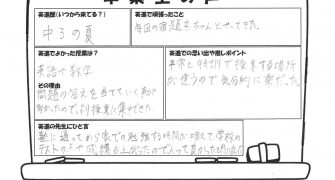 卒業生の声
英進館(いつから来てる?)
中3の夏
英進で頑張ったこと
毎回の宿題もちゃんとやってきた。
英進でよかった授業は?
英語や数学
その理由
問題の答えを当てていく事が
多かったので、より授業に集中できた。
英進での思い出や推しポイント
平常と特訓で授業する場所
が違うので気分的に楽だった。
英進の先生にひと言
塾に通ってお家での勉強する時間が増えて、学校の
テストの
成績も上がったので入って良かったです。